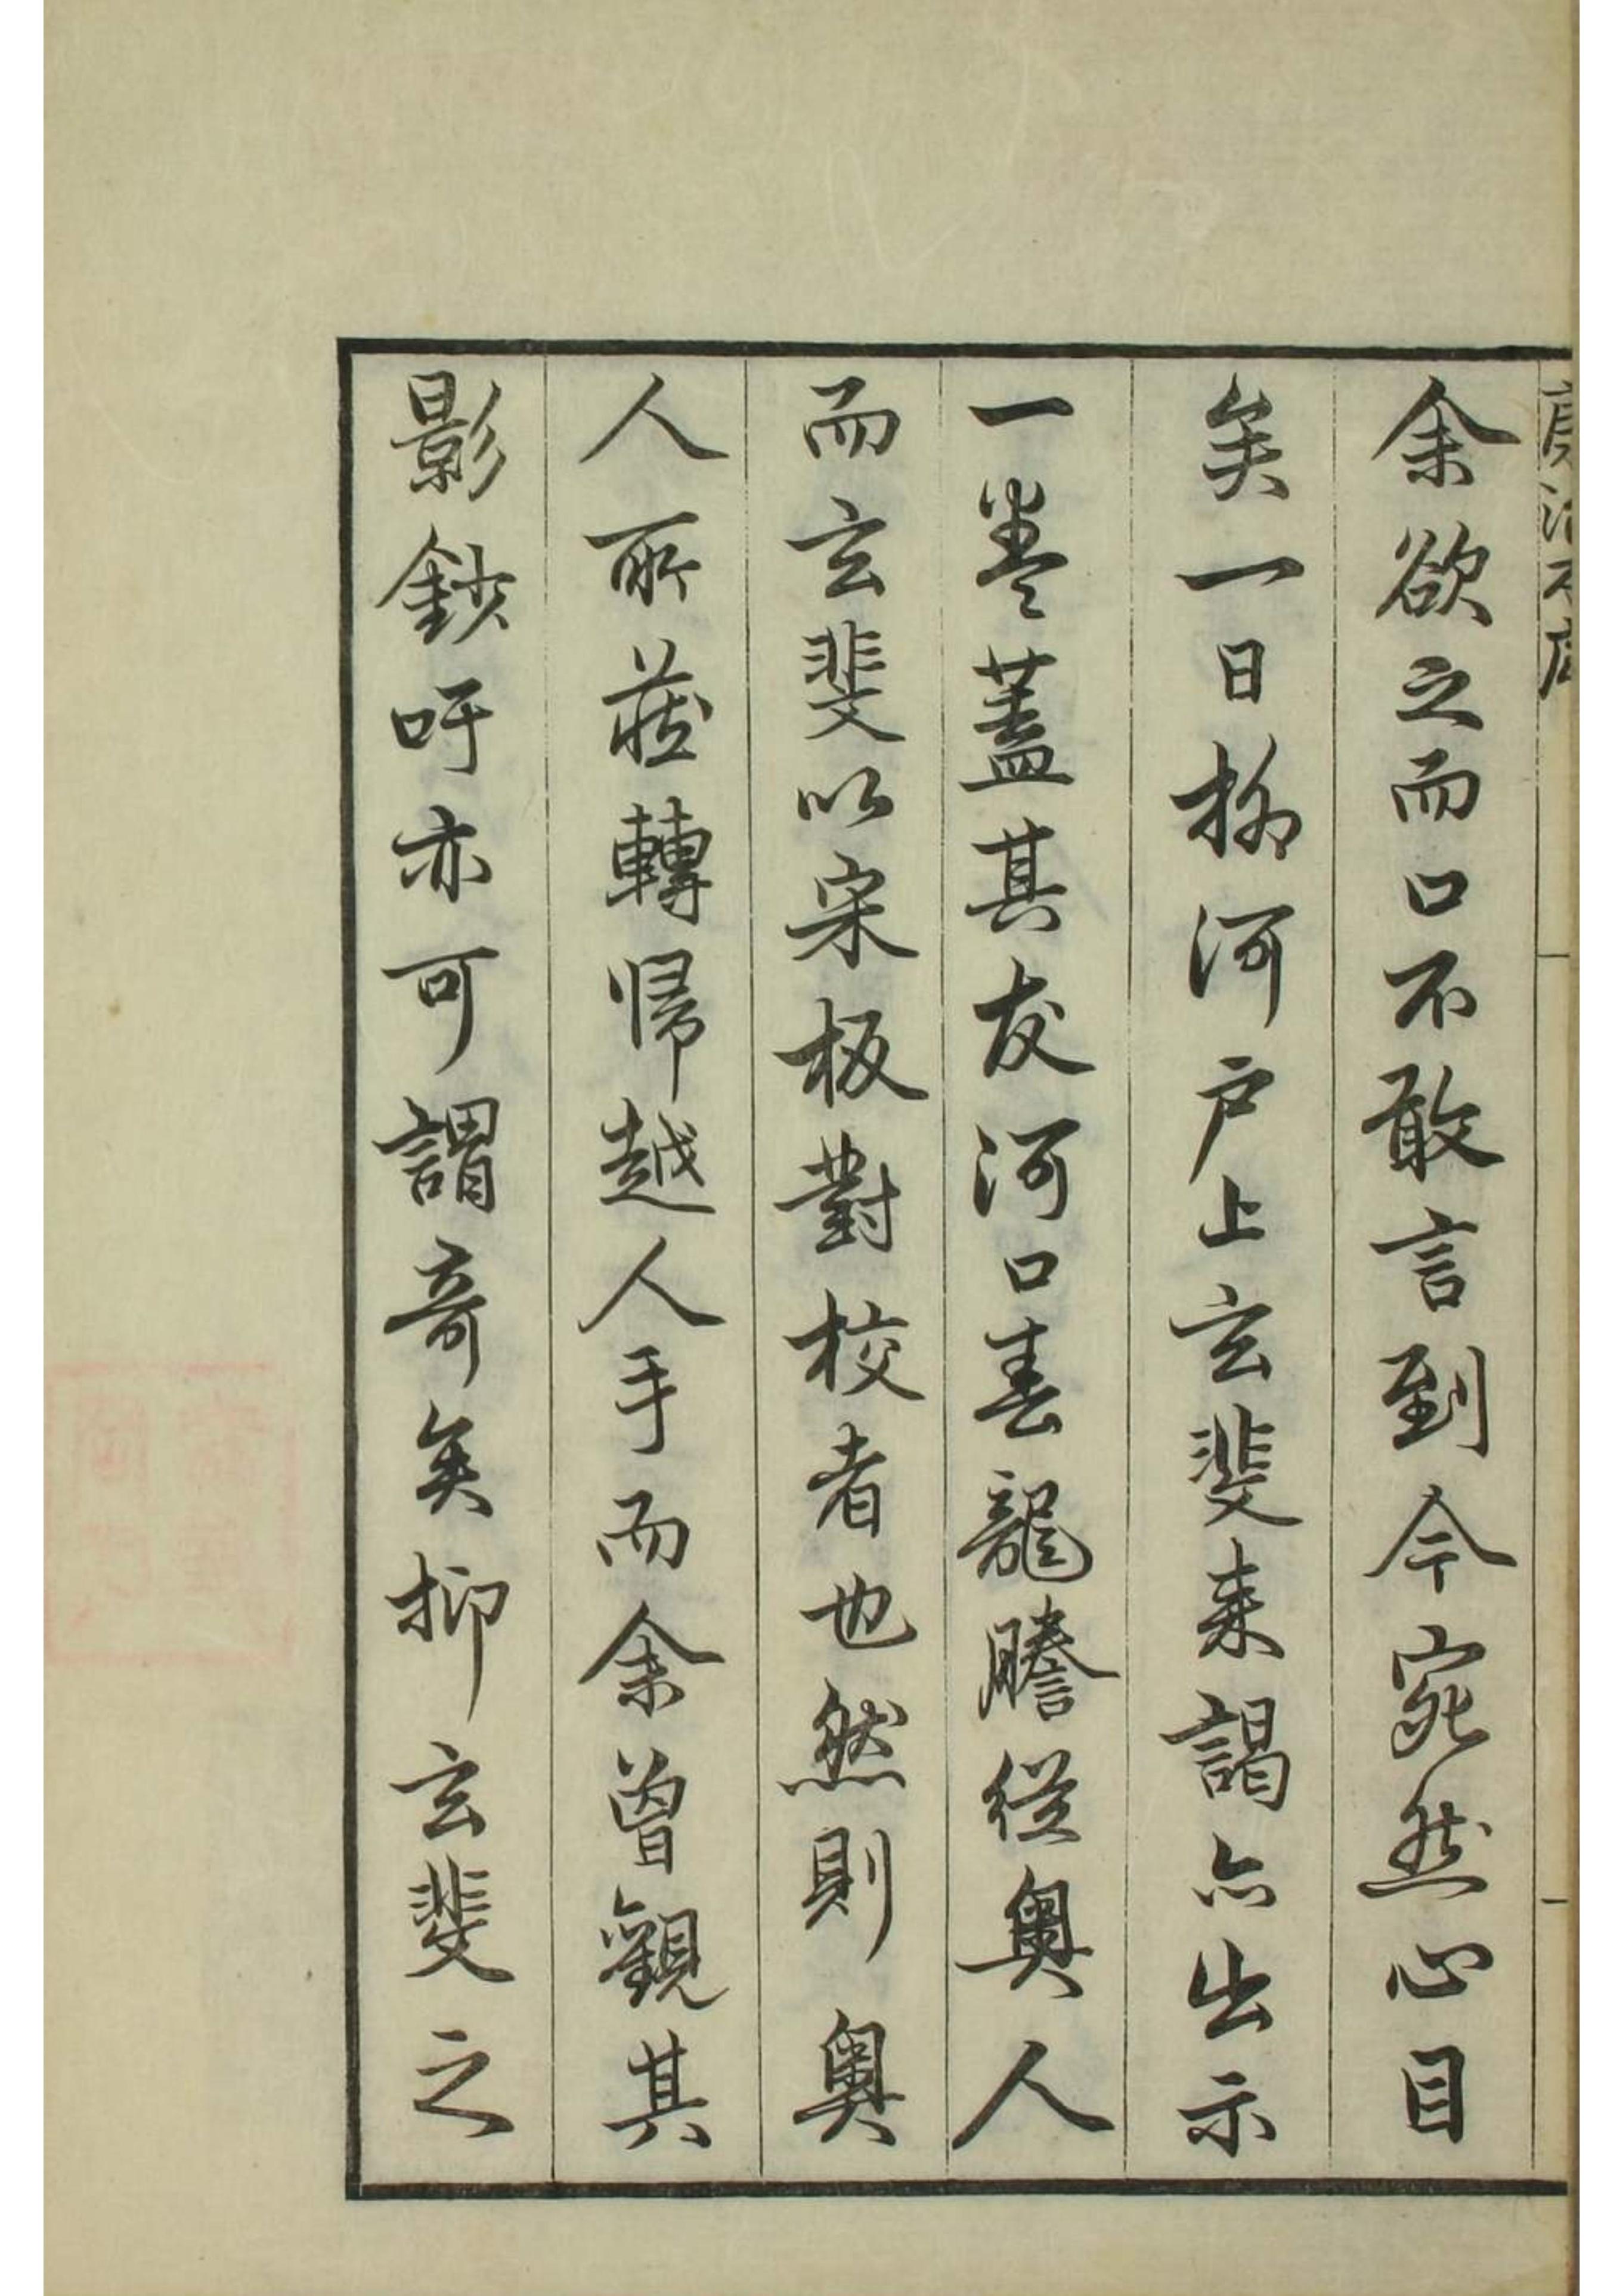 余欲之而口不敢言到今宛然心目
矣一日柳河戸上玄斐来謁亦出示
一卷蓋其友河口春龍謄従奥人
而玄斐以宋板對校者也然則奥
人所蔵轉帰越人手而余曽觀其
影鈔吁亦可謂竒矣抑玄斐之